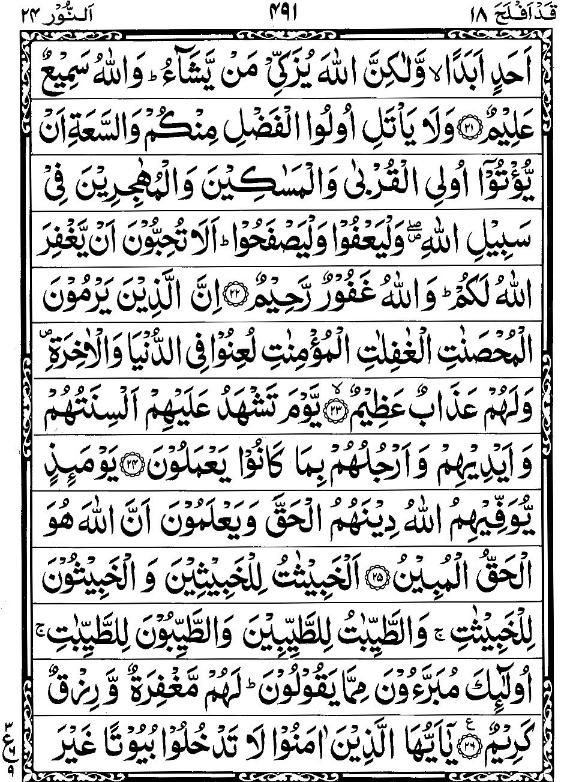 قَدْ اَفْلَحَ ۱۸ ۴۹۱ اَلنُّوْر ۲۴
اَحَدٍ اَبَدًا ۙ وَّلٰكِنَّ اللّٰهَ يُزَكِّيْ مَنْ يَّشَآءُ ؕ وَاللّٰهُ سَمِيْعٌ
عَلِيْمٌ ﴿۲۱﴾ وَلَا يَاْتَلِ اُولُوا الْفَضْلِ مِنْكُمْ وَالسَّعَةِ اَنْ
يُّؤْتُوْۤا اُولِي الْقُرْبٰى وَالْمَسٰكِيْنَ وَالْمُهٰجِرِيْنَ فِيْ
سَبِيْلِ اللّٰهِ ۖ وَلْيَعْفُوْا وَلْيَصْفَحُوْا ؕ اَلَا تُحِبُّوْنَ اَنْ يَّغْفِرَ
اللّٰهُ لَكُمْ ؕ وَاللّٰهُ غَفُوْرٌ رَّحِيْمٌ ﴿۲۲﴾ اِنَّ الَّذِيْنَ يَرْمُوْنَ
الْمُحْصَنٰتِ الْغٰفِلٰتِ الْمُؤْمِنٰتِ لُعِنُوْا فِي الدُّنْيَا وَالْاٰخِرَةِ ۪
وَلَهُمْ عَذَابٌ عَظِيْمٌ ﴿۲۳﴾ ۙ يَّوْمَ تَشْهَدُ عَلَيْهِمْ اَلْسِنَتُهُمْ
وَاَيْدِيْهِمْ وَاَرْجُلُهُمْ بِمَا كَانُوْا يَعْمَلُوْنَ ﴿۲۴﴾ يَوْمَئِذٍ
يُّوَفِّيْهِمُ اللّٰهُ دِيْنَهُمُ الْحَقَّ وَيَعْلَمُوْنَ اَنَّ اللّٰهَ هُوَ
الْحَقُّ الْمُبِيْنُ ﴿۲۵﴾ اَلْخَبِيْثٰتُ لِلْخَبِيْثِيْنَ وَالْخَبِيْثُوْنَ
لِلْخَبِيْثٰتِ ۚ وَالطَّيِّبٰتُ لِلطَّيِّبِيْنَ وَالطَّيِّبُوْنَ لِلطَّيِّبٰتِ ۚ
اُولٰٓئِكَ مُبَرَّءُوْنَ مِمَّا يَقُوْلُوْنَ ؕ لَهُمْ مَّغْفِرَةٌ وَّرِزْقٌ
كَرِيْمٌ ﴿۲۶﴾ ع يٰۤاَيُّهَا الَّذِيْنَ اٰمَنُوْا لَا تَدْخُلُوْا بُيُوْتًا غَيْرَ
۳
ع ۶
۹